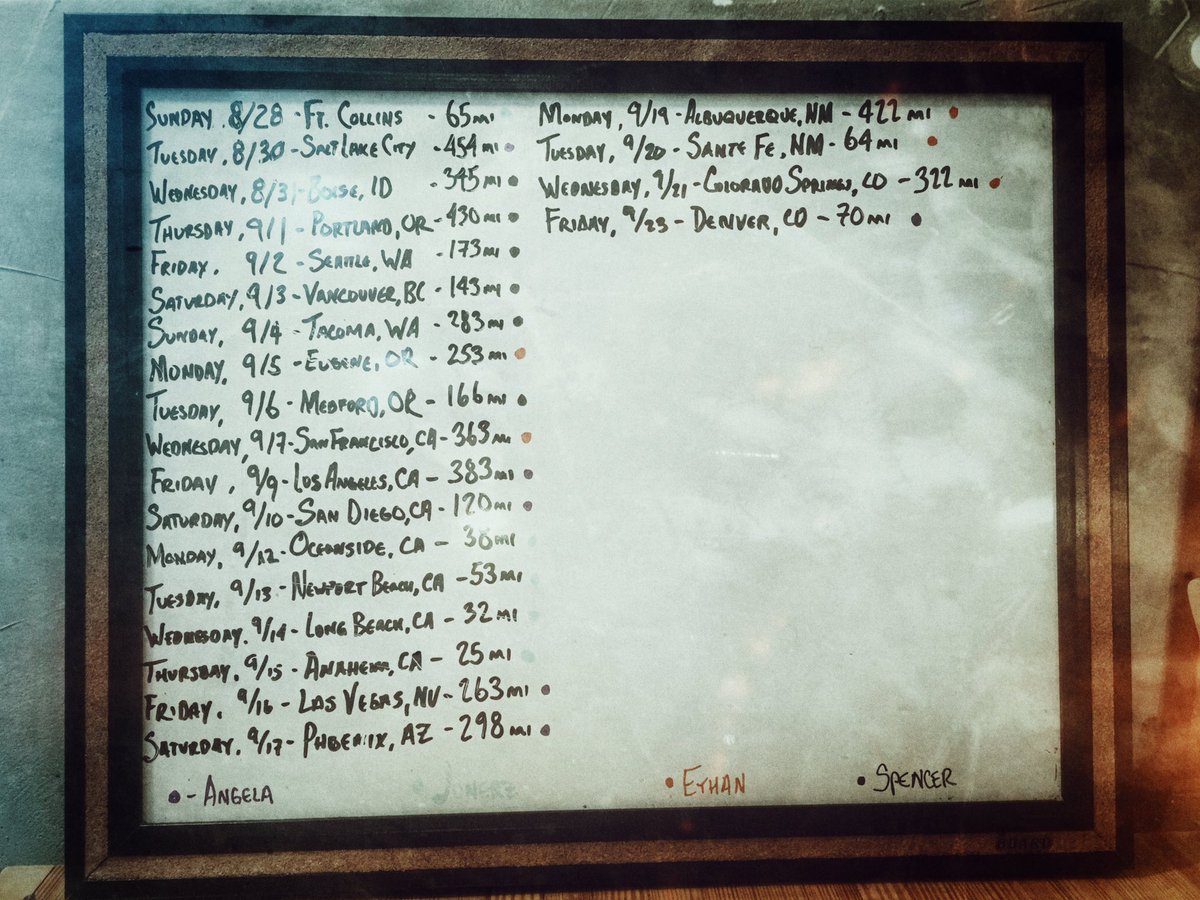 SUNDAY 8/28 - FT. COLLINS - 65MI
TUESDAY, 8/30 - SALT LAKE CITY - 454MI
WEDNESDAY, 8/31 - BOISE, ID - 345MI
THURSDAY, 9/1 - PORTLAND, OR - 430MI
FRIDAY, 9/2 - SEATTLE, WA - 173MI
SATURDAY, 9/3 - VANCOUVER, BC - 143MI
SUNDAY, 9/4 - TACOMA, WA - 283MI
MONDAY, 9/5 - EUGENE, OR - 253MI
TUESDAY, 9/6 - MEDFORD, OR - 166MI
WEDNESDAY, 9/7 - SAN FRANCISCO, CA - 363MI
FRIDAY, 9/9 - LOS ANGELES, CA - 383MI
SATURDAY, 9/10 - SAN DIEGO, CA - 120MI
MONDAY, 9/12 - OCEANSIDE, CA - 38MI
TUESDAY, 9/13 - NEWPORT BEACH, CA - 53MI
WEDNESDAY, 9/14 - LONG BEACH, CA - 32MI
THURSDAY, 9/15 - ANAHEIM, CA - 25MI
FRIDAY, 9/16 - LAS VEGAS, NV - 263MI
SATURDAY, 9/17 - PHOENIX, AZ - 298MI
MONDAY, 9/19 - ALBUQUERQUE, NM - 422MI
TUESDAY, 9/20 - SANTE FE, NM - 64MI
WEDNESDAY, 9/21 - COLORADO SPRINGS, CO - 322MI
FRIDAY, 9/23 - DENVER, CO - 70MI
- ANGELA
ETHAN
SPENCER